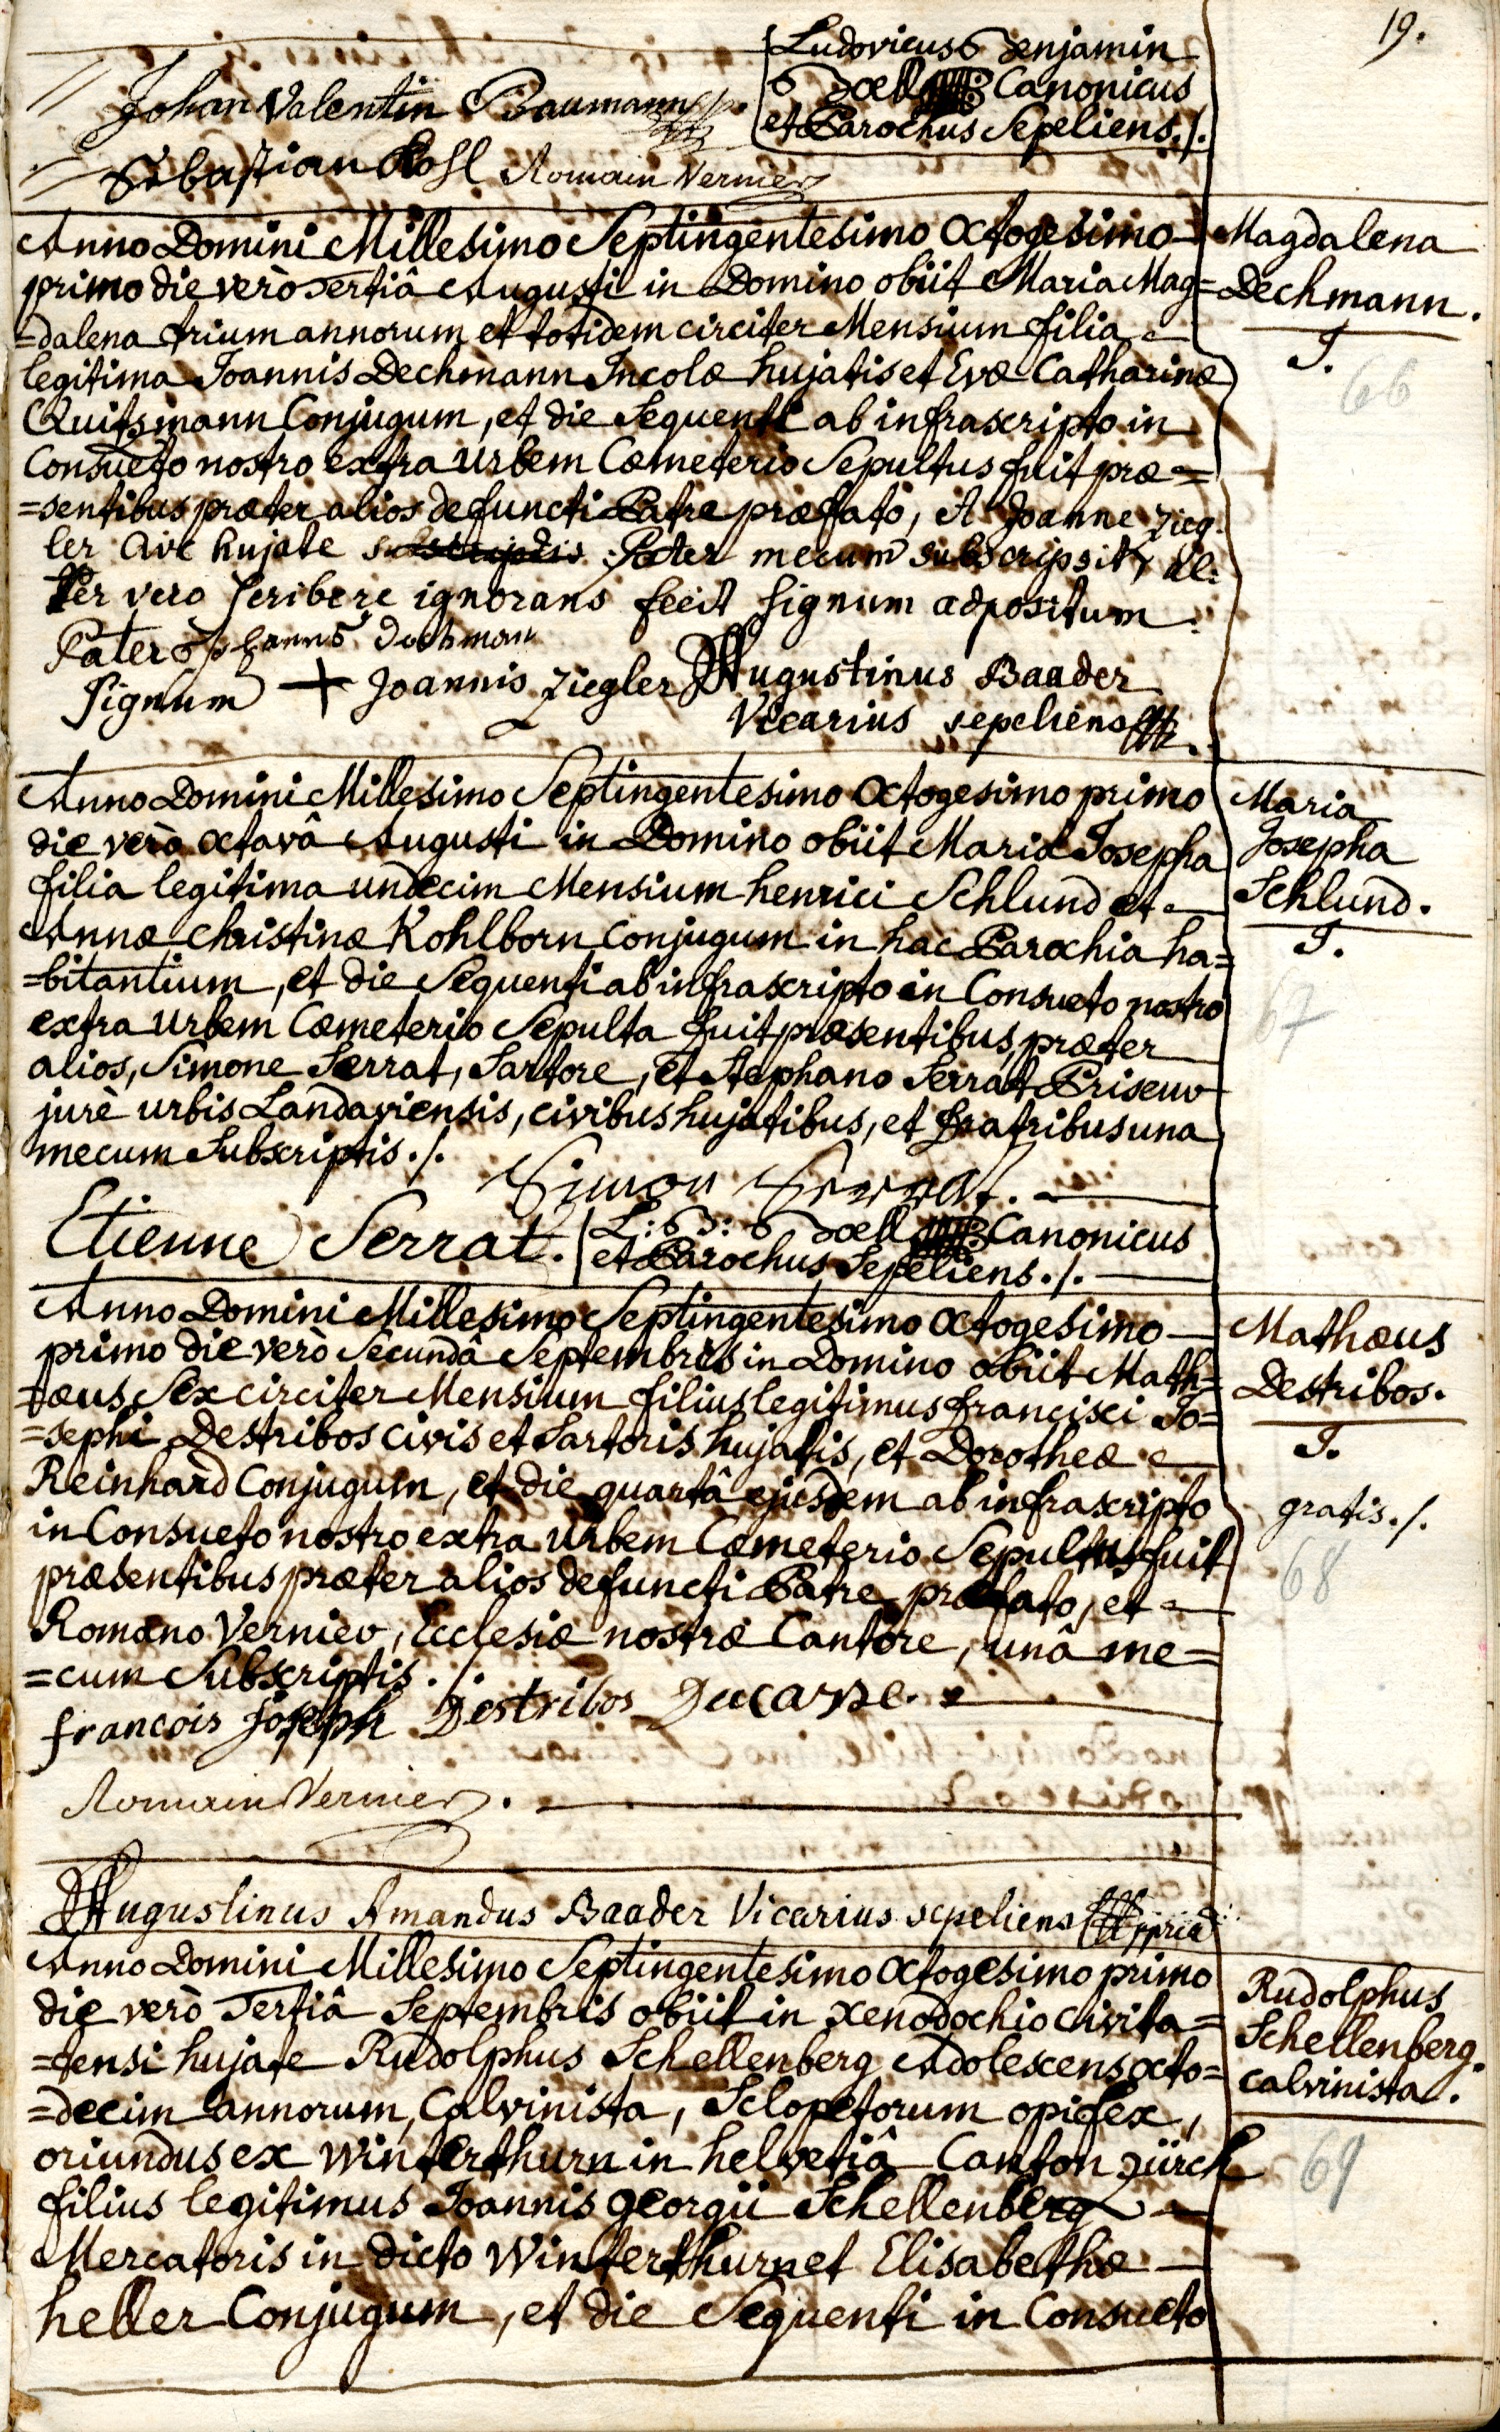 19.
Ludovicus Benjamin
Doell Canonicus
et Parochus Sepeliens./.
Johan Valentin Baumann
Sebastian Kohl Romain Vernier
Anno Domini Millesimo Septingentesimo Octogesimo
primo die verò Tertiâ Augusti in Domino obiit Maria Mag=
=dalena trium annorum et totidem circiter Mensium filia
legitima Joannis Dechmann Incolæ hujatis et Evæ Catharinæ
Quitsmann Conjugum, et die Sequenti ab infrascripto in
Consueto nostro extra Urbem Cœmeterio Sepultus fuit præ=
=sentibus præter alios defuncti Patre præfato, et Joanne Zieg-
ler Cive hujate subscriptis Pater mecum subscripsit, al-
ter vero scribere ignorans fecit signum adpositum.
Pater Johannes Dechman
Signum + Joannis Ziegler Augustinus Baader
Vicarius sepeliens
Magdalena
Dechmann.
J.
66
Anno Domini Millesimo Septingentesimo Octogesimo primo
die verò octavâ Augusti in Domino obiit Maria Josepha
filia legitima undecim Mensium henrici Schlund et
Annæ Christinæ Kohlborn Conjugum in hac Parochia ha=
=bitantium, et die Sequenti ab infrascripto in Consueto nostro
extra Urbem Cœmeterio Sepulta fuit præsentibus, præter
alios, Simone Serrat, Sartore, et Stephano Serrat
jurè urbis Landaviensis, civibus hujatibus, et fratribus una
mecum Subscriptis./.
Simon Serrat.
Etienne Serrat. L: B: Doell Canonicus
et Parochus Sepeliens./.
Maria
Josepha
Schlund.
J.
67
Anno Domini Millesimo Septingentesimo Octogesimo
primo die verò Secundâ Septembris in Domino obiit Math=
=æus Sex circiter Mensium filius legitimus francisci Jo=
=sephi Destribos civis et Sartoris hujatis, et Dorotheæ
Reinhard Conjugum, et die quartâ ejusdem ab infrascripto
in Consueto nostro extra Urbem Cœmeterio Sepultus fuit
præsentibus præter alios defuncti Patre præfato, et
Romano Vernier, Ecclesiæ nostræ Cantore, unâ me=
=cum Subscriptis./.
francois Joseph Destribos Ducarne.
Romain Vernier.
Augustinus Amandus Baader Vicarius sepeliens ppria
Mathæus
Destribos.
J.
gratis./.
68
Anno Domini Millesimo Septingentesimo Octogesimo primo
die verò Tertiâ Septembris obiit in Xenodochio civita=
=tensi hujate Rudolphus Schellenberg Adolescens octo=
=decim annorum, Calvinista, Sclopetorum opifex,
oriundus ex Winterthurn in helvetiâ Canton Zürch
filius legitimus Joannis Georgii Schellenberg
Mercatoris in dicto Winterthurn et Elisabethæ
heller Conjugum, et die Sequenti in Consueto
Rudolphus
Schellenberg.
Calvinista.
69